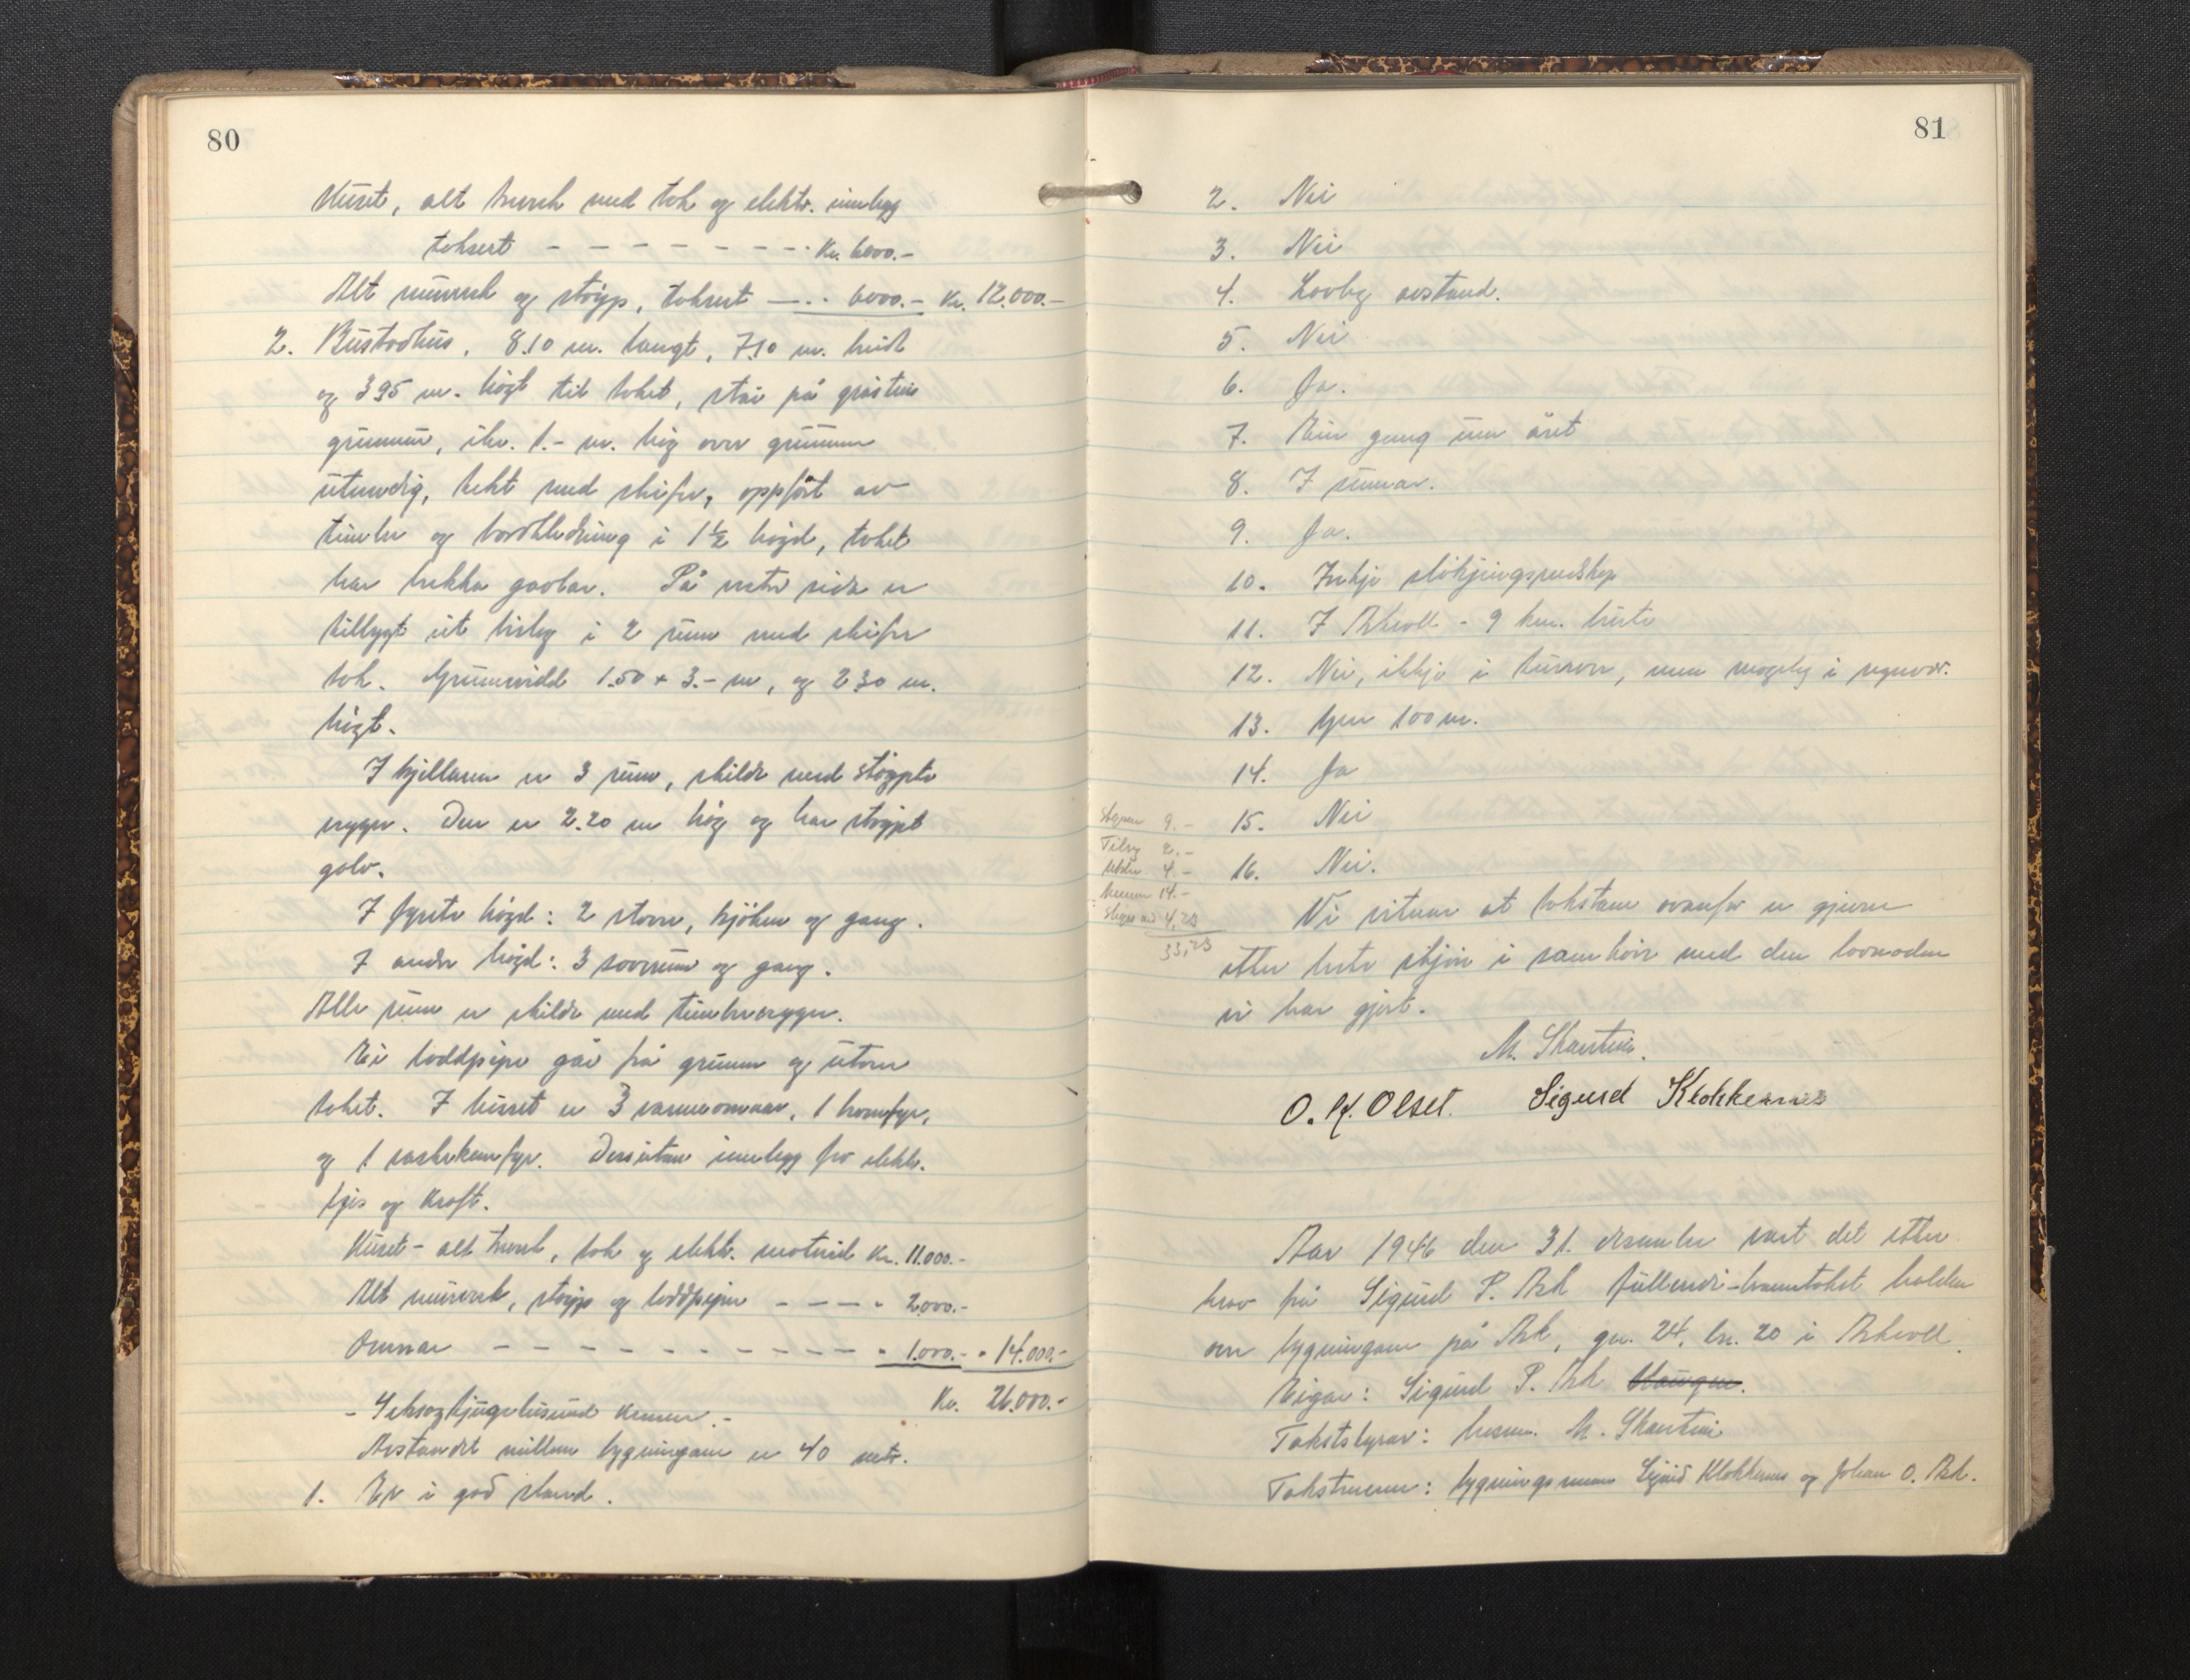 80
Huset, alt treverk med tak og elektr. innlegg
taksert - - - - - - - - Kr. 6000.-
Alt murverk og støyp, taksert - - 6000.- Kr. 12.000.-
2. Bustadhus, 8.10 m. langt, 7.10 m. breidt
og 3.95 m. høgt til taket, står på gråsteins
grunnmur, 1.- m. høg over grunnen
utvendig, tekt med skifer, oppført av
timber og bordkledning i 1½ høgd, taket
har brekka gavlar. På vestre sida er
tilbygt eit bislag i 2 rum med skifer
tak. Grunnvidd 1.50 + 3.- m, og 2.30 m.
høgt.
I kjellaren er 3 rum, skilde med støypte
vegger. Den er 2.20 m høg og har støypt
golv.
I fyrste høgd: 2 stover, kjøken og gang.
I andre høgd: 3 soverum og gang.
Alle rum er skilde med timbervegger.
Ei loddpipe går frå grunnen og utover
taket. I huset er 3 varmeomnar, 1 komfyr,
og 1 vaskekumfyr. Dessutan innlegg for elektr.
ljos og kraft.
Huset - alt treverk, tak og elektr. materiell Kr. 11.000.-
Alt murverk, støyp og loddpipe - - - - 2.000.-
Omnar - - - - - - - - - - - - 1.000.- " 14.000.-
Kr. 26.000.-
- Seksogtjugetusund kroner.-
Avstandet millom bygningane er 40 metr.
1. Er i god stand.
81
2. Nei
3. Nei
4. Lovleg avstand.
5. Nei
6. Ja.
7. Ein gang um året
8. I rumar.
9. Ja.
10. Inkje sløkjingsreidskap
11. I Askvoll - 9 km. burte
12. Nei, ikkje i turrver, men mogeleg i regnver.
13. 100 m.
14. Ja
15. Nei
16. Nei.
9.-
Tilsyn 2.-
4.-
14.-
4,23
33,23
Vi vitnar at takstane ovanfor er gjevne
etter beste skjøn i samhøve med den lovnaden
vi har gjort.
M. Skarstein.
O. K. Olset. Sigurd Klokkernes
Aar 1946 den 31. desember vart det etter
krav frå Sigurd P. Ask fullverdi-branntakst halden
over bygningane på Ask, gn. 24, bn. 20 i Askvoll.
Eigar: Sigurd P. Ask
Takststyrar: lensm. M. Skarstein
Takstmenn: bygningsmenn Sigurd Klokkernes og Johan O. Ask.